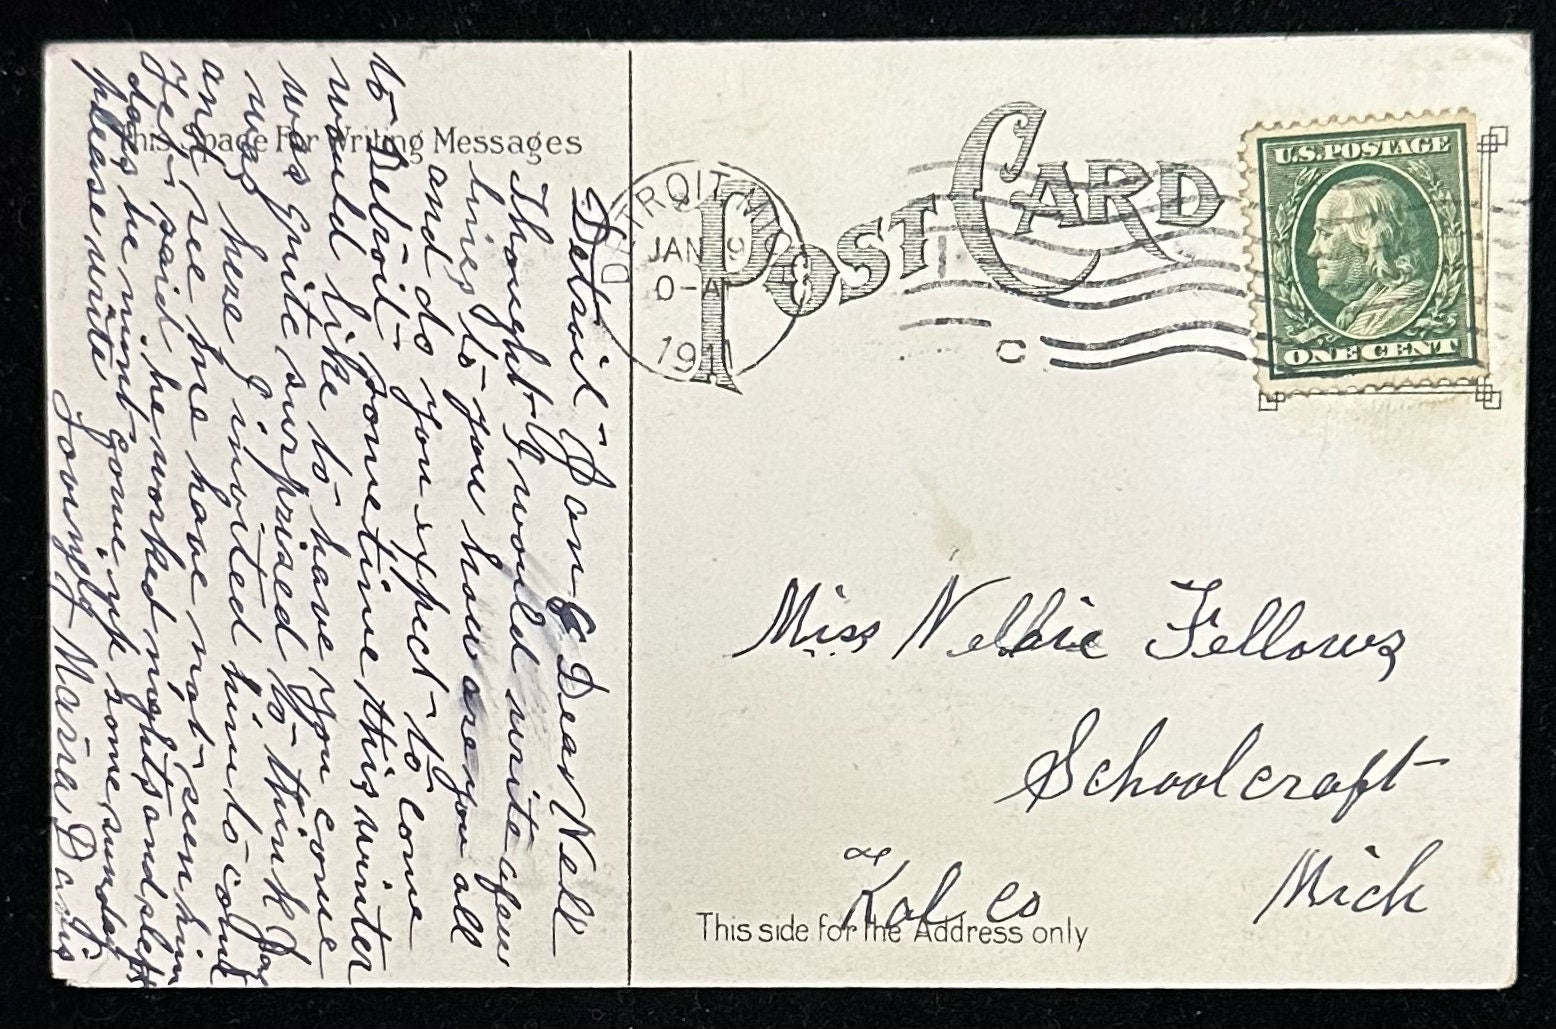 This Space For Writing Messages
POST CARD
DETROIT, MICH
JAN 9
0-A
1911
U.S. POSTAGE
ONE CENT
Detroit Jan 8 Dear Nell
Thought I would write a few
lines to you how are you all
and do you expect to come
to Detroit sometime this winter
would like to have you come
was quite surprised to think Jay
was here I invited him to come
and see me have not seen him
yet said he worked nights and slept
days he must come up some sunday
please write
Lovingly Maria Davis
Miss Nellie Fellows
Schoolcraft
Kal. Co Mich
This side for the Address only